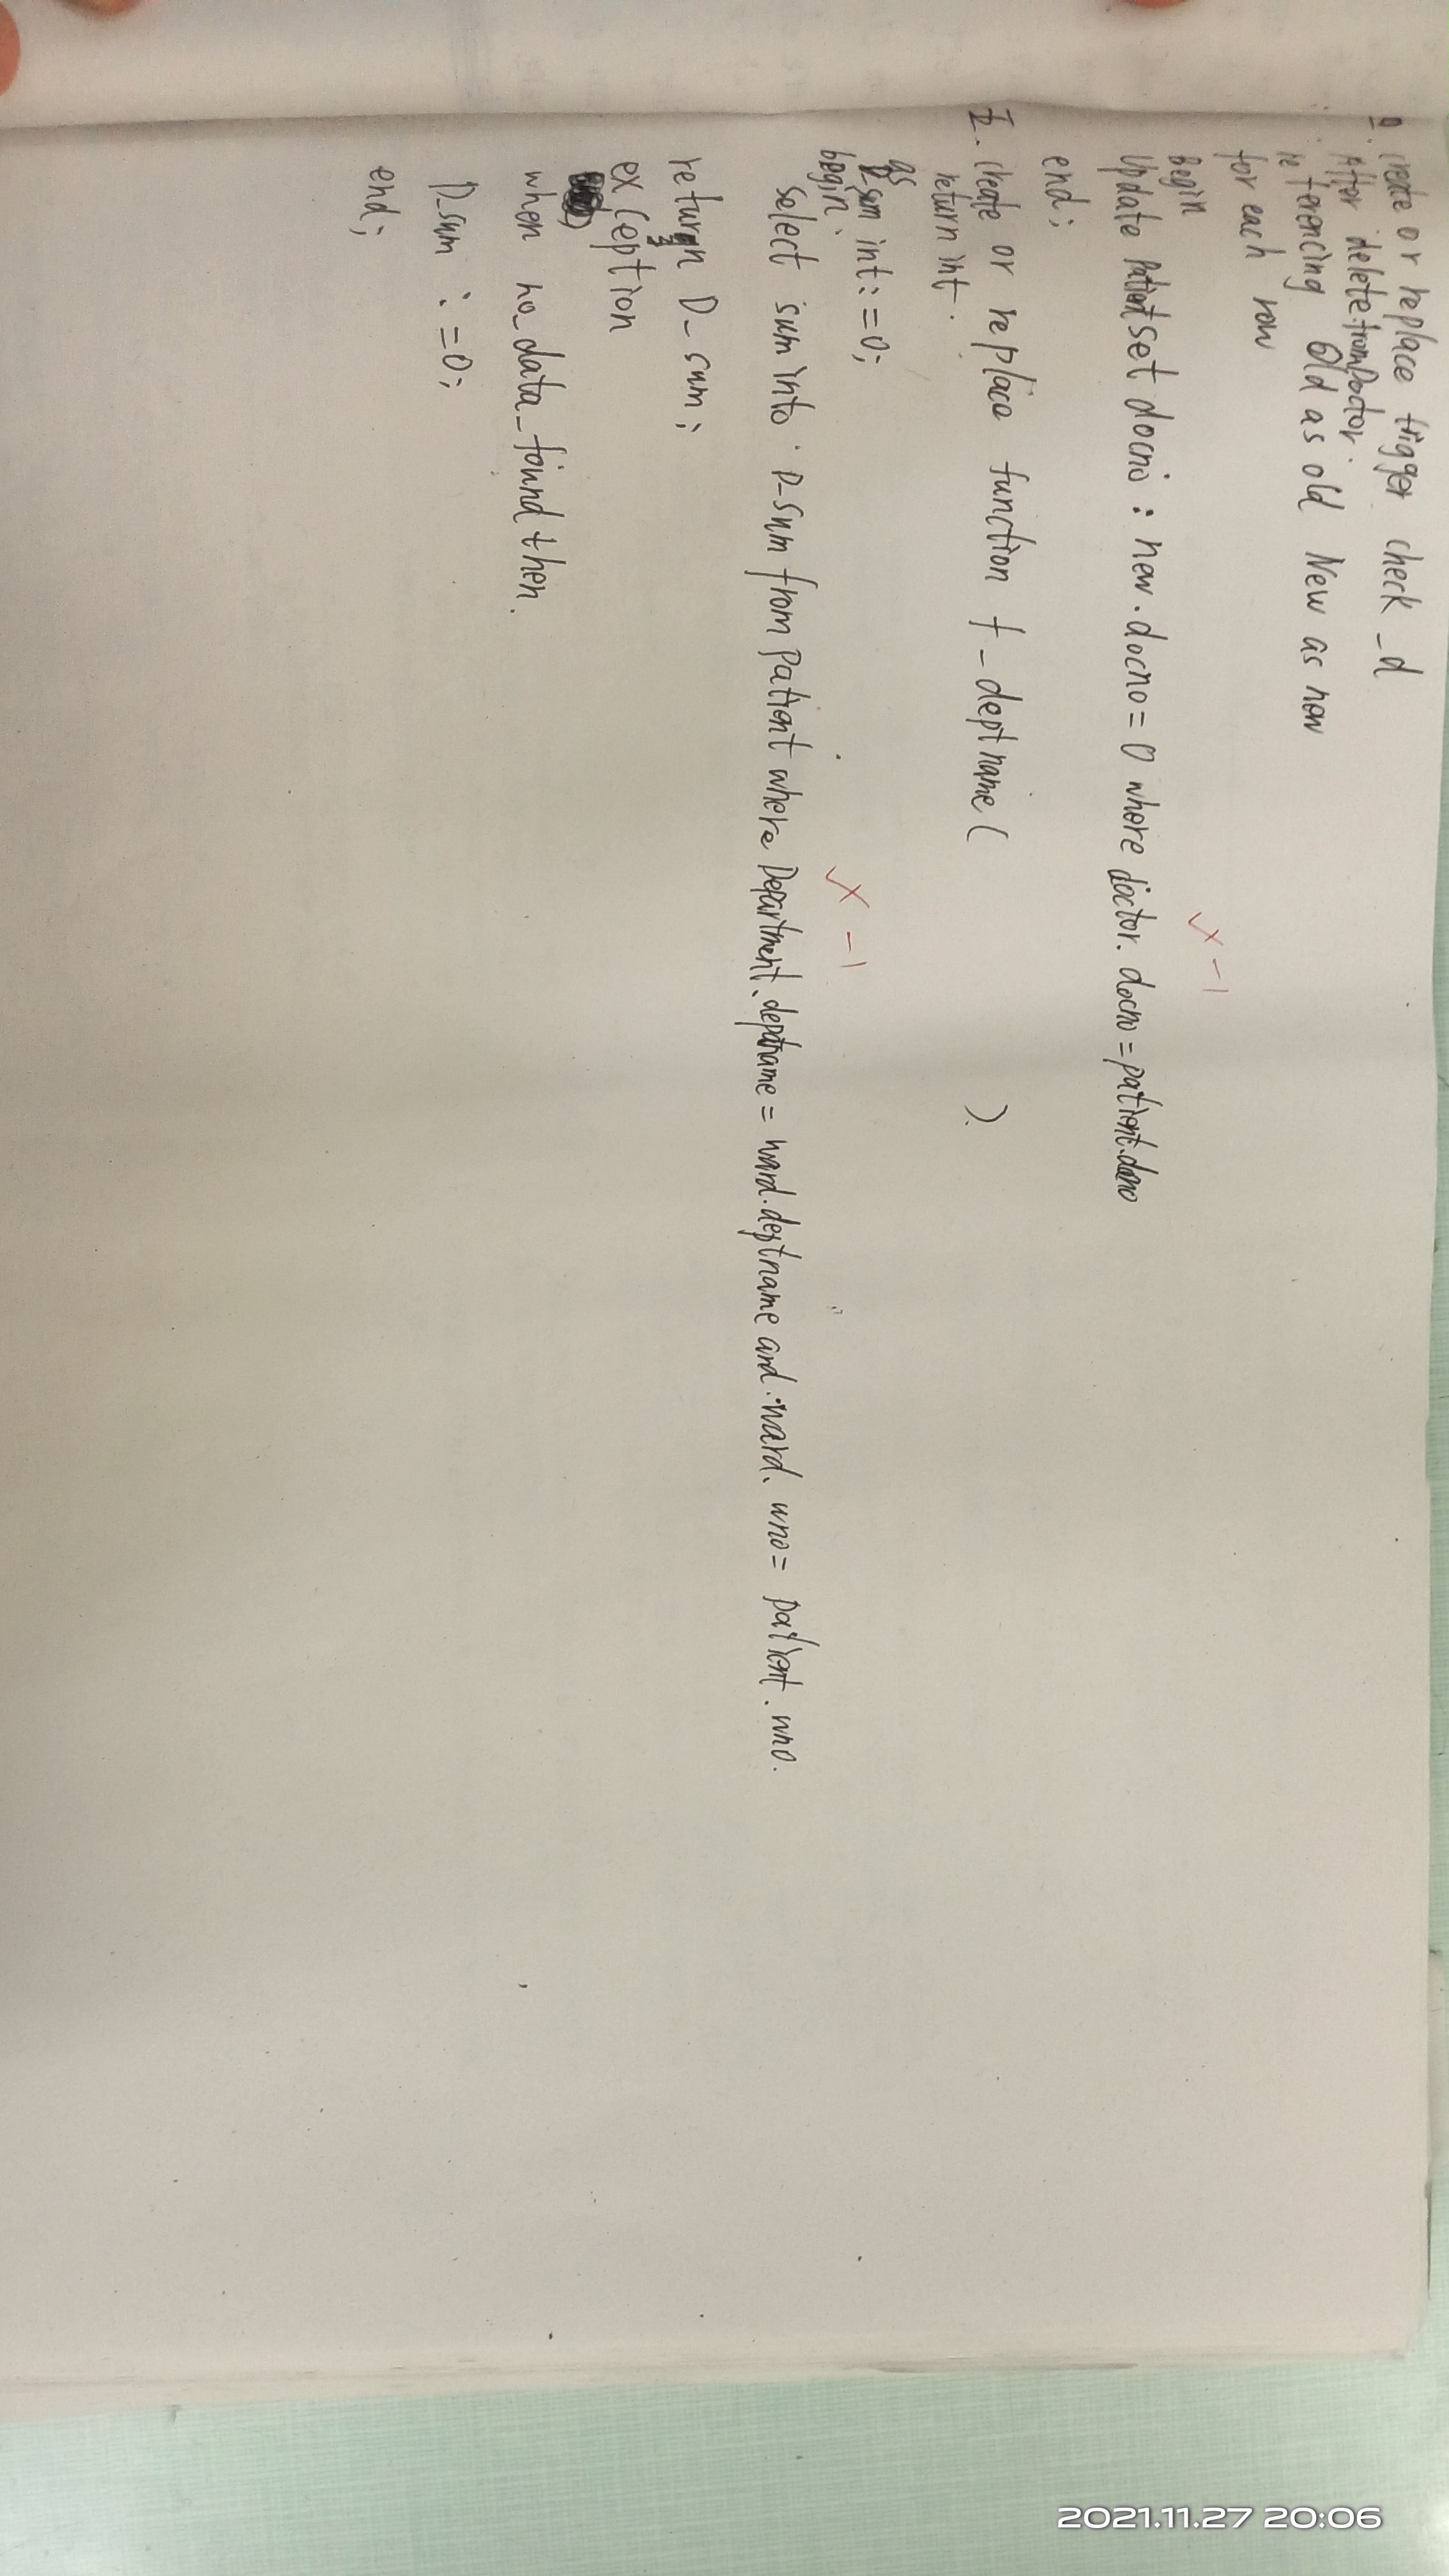 四. create or replace trigger check_d
After delete from Doctor.
referencing Old as old New as new
for each row
Begin
-1
Update Patient set docno : new.docno = 0 where doctor. docno = patient.docno
end;
五. create or replace function f_deptname( ).
return int.
as
D_sum int:=0;
begin.
-1
select sum into D_sum from patient where Department.deptname = ward.deptname and ward. wno = patient. wno.
return D_sum;
exception
when no_data_found then.
D_sum :=0;
end;
2021.11.27 20:06